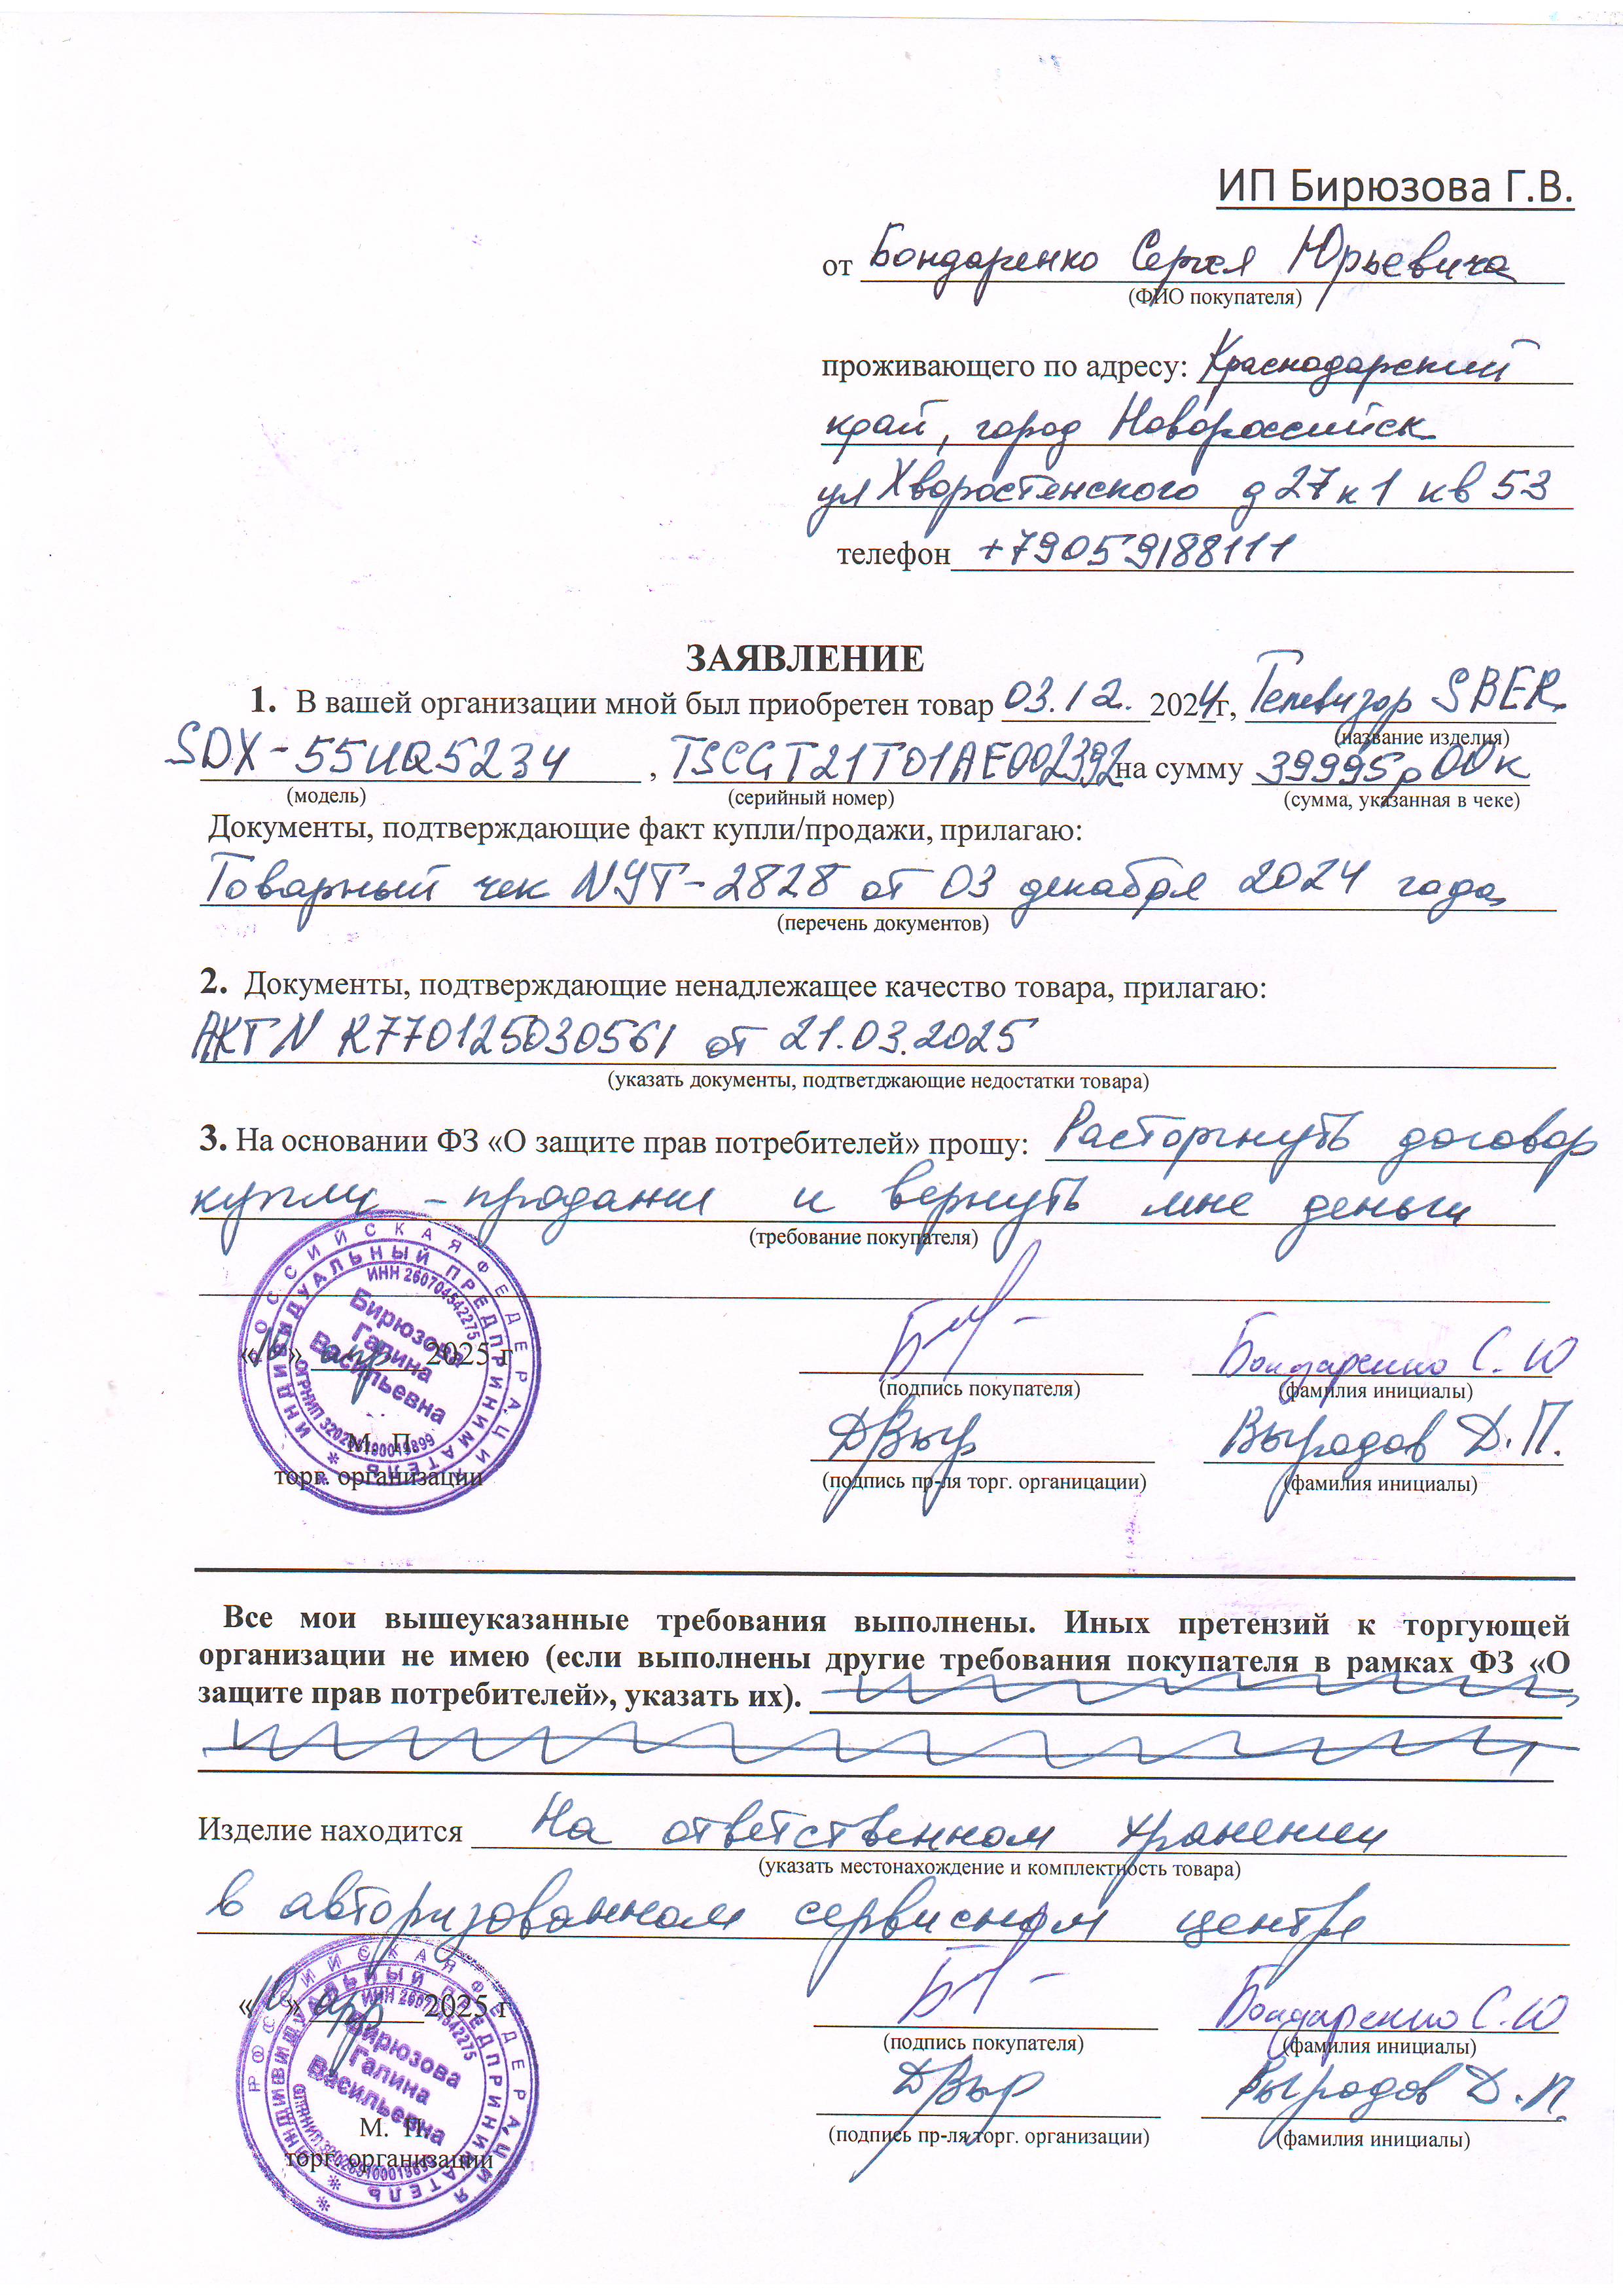 ИП Бирюзова Г.В.
от Бондаренко Сергея Юрьевича
(ФИО покупателя)
проживающего по адресу: Краснодарский
край, город Новороссийск
ул Хворостенского д 27 к 1 кв 53
телефон +79059188111
ЗАЯВЛЕНИЕ
1. В вашей организации мной был приобретен товар 03.12. 2024г, Телевизор SBER
(название изделия)
SDX-55UQ5234, TSCGT21T01AE002392 на сумму 39995р 00к
(модель) (серийный номер) (сумма, указанная в чеке)
Документы, подтверждающие факт купли/продажи, прилагаю:
Товарный чек NУТ-2828 от 03 декабря 2024 года
(перечень документов)
2. Документы, подтверждающие ненадлежащее качество товара, прилагаю:
АКТ N R770125030561 от 21.03.2025
(указать документы, подтветджающие недостатки товара)
3. На основании ФЗ «О защите прав потребителей» прошу: Расторгнуть договор
купли-продажи и вернуть мне деньги
(требование покупателя)
РОССИЙСКАЯ ФЕДЕРАЦИЯ
ИНДИВИДУАЛЬНЫЙ ПРЕДПРИНИМАТЕЛЬ
ИНН 260704542275
Бирюзова
Галина
Васильевна
« » апр 2025 г
Бондаренко С.Ю
(подпись покупателя) (фамилия инициалы)
ДВыр Выродов Д.П.
М. П.
(подпись пр-ля торг. органицации) (фамилия инициалы)
торг. организации
Все мои вышеуказанные требования выполнены. Иных претензий к торгующей
организации не имею (если выполнены другие требования покупателя в рамках ФЗ «О
защите прав потребителей», указать их).
Изделие находится На ответственном хранении
(указать местонахождение и комплектность товара)
в авторизованном сервисном центре
РОССИЙСКАЯ ФЕДЕРАЦИЯ
ИНДИВИДУАЛЬНЫЙ ПРЕДПРИНИМАТЕЛЬ
ИНН 260704542275
Бирюзова
Галина
Васильевна
« » апр 2025 г
Бондаренко С.Ю
(подпись покупателя) (фамилия инициалы)
ДВыр Выродов Д.П.
М. П.
(подпись пр-ля торг. организации) (фамилия инициалы)
торг. организации